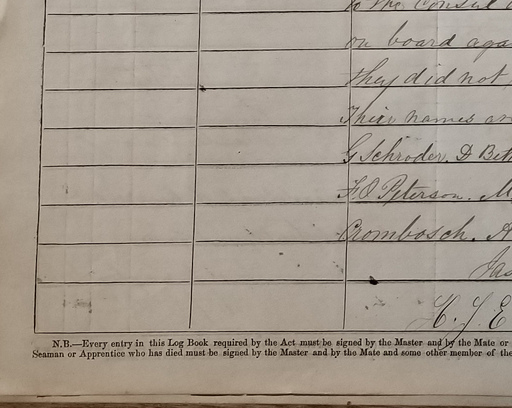 to the Consul
on board aga
they did not
Their names an
G Schroder. D Beth
F. O Peterson. M
Crombosch. A
Jas
H. J. E
N.B.—Every entry in this Log Book required by the Act must be signed by the Master and by the Mate or
Seaman or Apprentice who has died must be signed by the Master and by the Mate and some other member of the